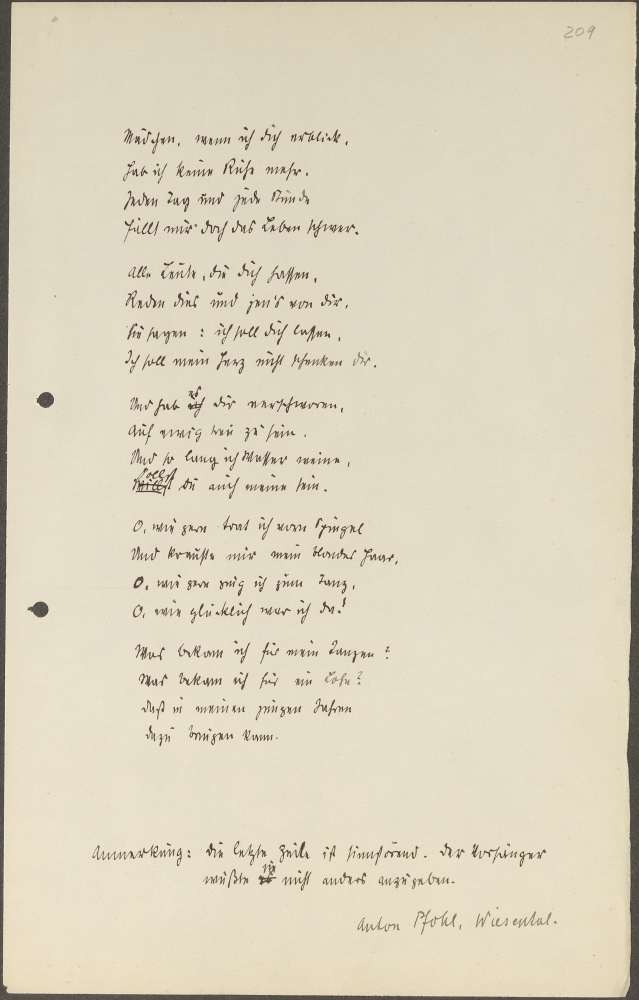 209
Mädchen, wenn ich dich erblick,
Hab ich keine Ruhe mehr.
Jeden Tag und jede Stunde
Fällt mir doch das Leben schwer.
Alle Leute, die dich hassen,
Reden dies und jen's von dir.
Sie sagen: ich soll dich lassen,
Ich soll mein Herz nicht schenken dir.
Und hab es dir verschworen,
Auf ewig treu zu sein.
Und so lang ich Wasser weine,
sollst Du auch meine sein.
O, wie gern trat ich vorn Spiegel
Und krauste mir mein blondes Haar,
O, wie gern ging ich zum Tanz,
O, wie glücklich war ich da!
Was bekam ich für mein Tanzen?
Was bekam ich für ein Lohn?
daß in meinen jungen Jahren
dazu kann.
Anmerkung: die letzte Zeile ist sinnstörend. der Vorsänger
wußte sie nicht anders anzugeben.
Anton Pfohl, Wiesental.